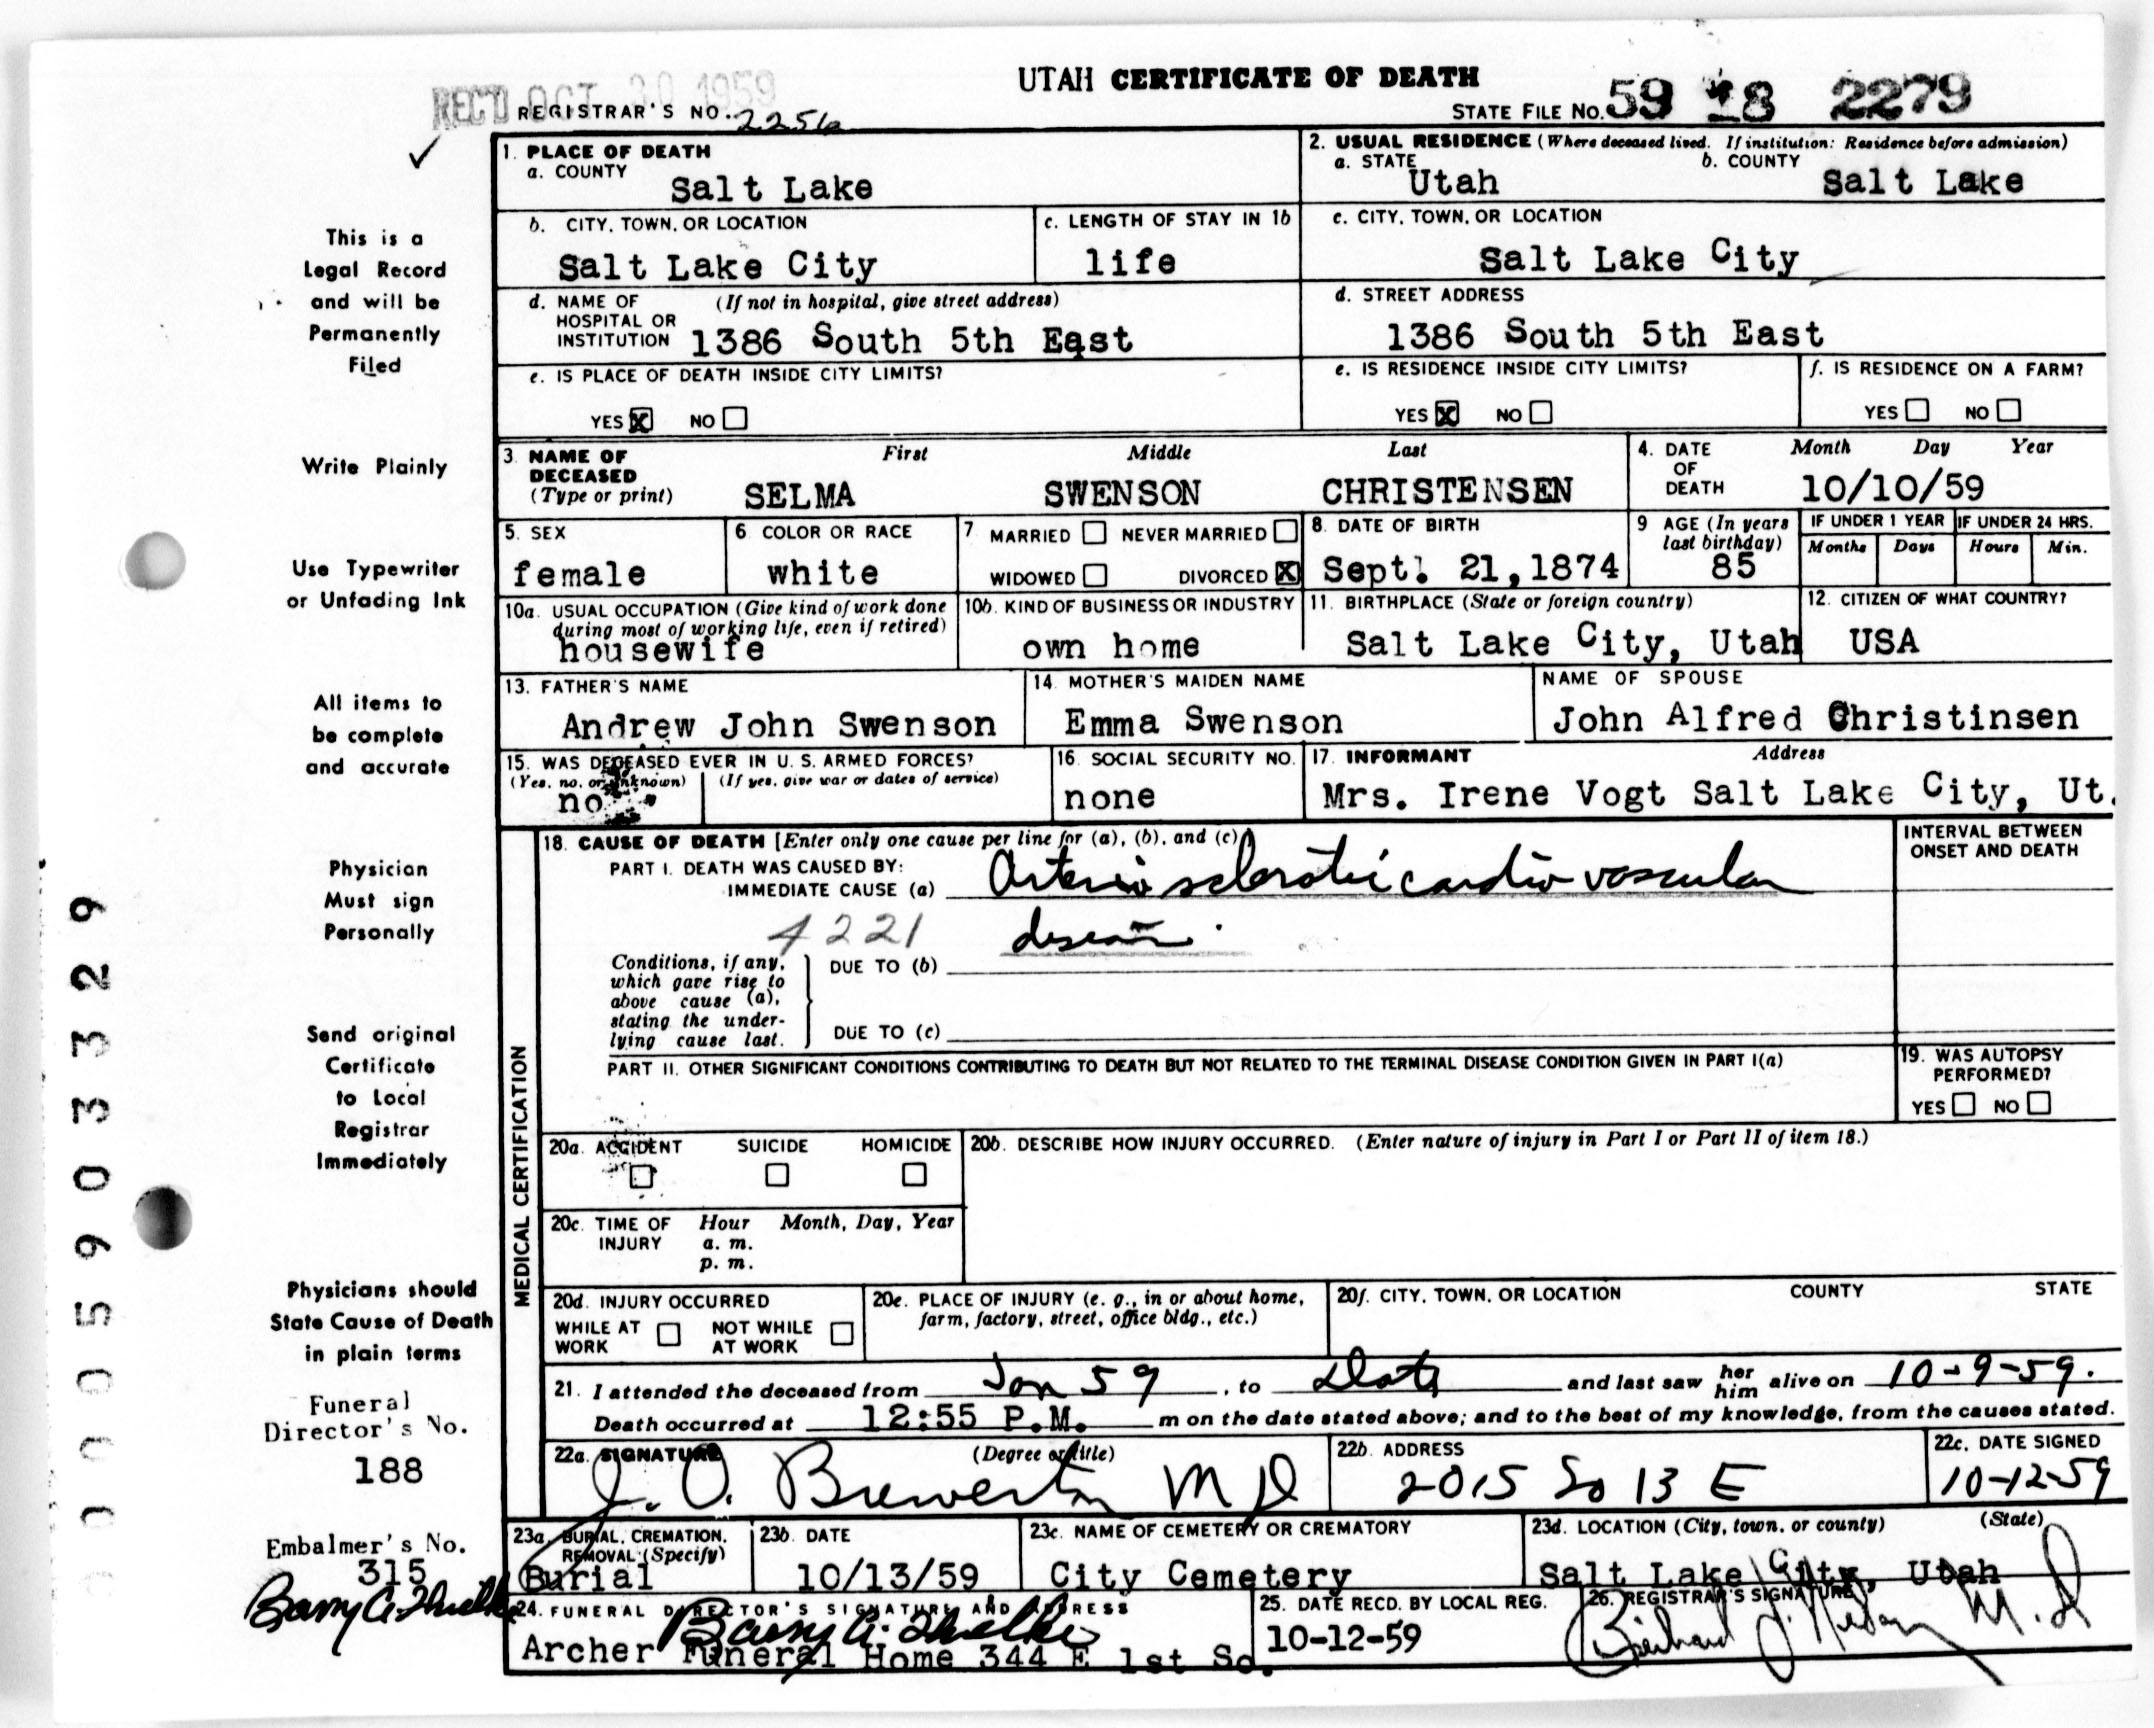 UTAH CERTIFICATE OF DEATH
REC'D OCT 30 1959
REGISTRAR'S NO. 2256
STATE FILE NO. 59 18 2279
1. PLACE OF DEATH
a. COUNTY
Salt Lake
2. USUAL RESIDENCE (Where deceased lived. If institution: Residence before admission)
a. STATE Utah b. COUNTY Salt Lake
b. CITY, TOWN, OR LOCATION
Salt Lake City
c. LENGTH OF STAY IN 1b
life
c. CITY, TOWN, OR LOCATION
Salt Lake City
d. NAME OF HOSPITAL OR INSTITUTION (If not in hospital, give street address)
1386 South 5th East
d. STREET ADDRESS
1386 South 5th East
e. IS PLACE OF DEATH INSIDE CITY LIMITS?
YES X NO
e. IS RESIDENCE INSIDE CITY LIMITS?
YES X NO
f. IS RESIDENCE ON A FARM?
YES NO
3. NAME OF DECEASED (Type or print)
First Middle Last
SELMA SWENSON CHRISTENSEN
4. DATE OF DEATH Month Day Year
10/10/59
5. SEX
female
6. COLOR OR RACE
white
7. MARRIED NEVER MARRIED
WIDOWED DIVORCED X
8. DATE OF BIRTH
Sept. 21, 1874
9 AGE (In years last birthday)
85
IF UNDER 1 YEAR
Months Days
IF UNDER 24 HRS.
Hours Min.
10a. USUAL OCCUPATION (Give kind of work done during most of working life, even if retired)
housewife
10b. KIND OF BUSINESS OR INDUSTRY
own home
11. BIRTHPLACE (State or foreign country)
Salt Lake City, Utah
12. CITIZEN OF WHAT COUNTRY?
USA
13. FATHER'S NAME
Andrew John Swenson
14. MOTHER'S MAIDEN NAME
Emma Swenson
NAME OF SPOUSE
John Alfred Christinsen
15. WAS DECEASED EVER IN U. S. ARMED FORCES?
(Yes, no, or unknown) (If yes, give war or dates of service)
no
16. SOCIAL SECURITY NO.
none
17. INFORMANT Address
Mrs. Irene Vogt Salt Lake City, Ut.
MEDICAL CERTIFICATION
18. CAUSE OF DEATH [Enter only one cause per line for (a), (b), and (c)]
PART I. DEATH WAS CAUSED BY:
IMMEDIATE CAUSE (a) Arterio sclerotic cardio vascular
4221 disease.
INTERVAL BETWEEN ONSET AND DEATH
Conditions, if any, which gave rise to above cause (a), stating the underlying cause last.
DUE TO (b)
DUE TO (c)
PART II. OTHER SIGNIFICANT CONDITIONS CONTRIBUTING TO DEATH BUT NOT RELATED TO THE TERMINAL DISEASE CONDITION GIVEN IN PART I(a)
19. WAS AUTOPSY PERFORMED?
YES NO
20a. ACCIDENT SUICIDE HOMICIDE
20b. DESCRIBE HOW INJURY OCCURRED. (Enter nature of injury in Part I or Part II of item 18.)
20c. TIME OF INJURY Hour Month, Day, Year
a. m.
p. m.
20d. INJURY OCCURRED
WHILE AT WORK NOT WHILE AT WORK
20e. PLACE OF INJURY (e. g., in or about home, farm, factory, street, office bldg., etc.)
20f. CITY, TOWN, OR LOCATION COUNTY STATE
21. I attended the deceased from Jan 59, to Date and last saw her him alive on 10-9-59.
Death occurred at 12:55 P.M. m on the date stated above; and to the best of my knowledge, from the causes stated.
22a. SIGNATURE (Degree or title)
J. O. Brewerton MD
22b. ADDRESS
2015 So 13 E
22c. DATE SIGNED
10-12-59
23a. BURIAL, CREMATION, REMOVAL (Specify)
Burial
23b. DATE
10/13/59
23c. NAME OF CEMETERY OR CREMATORY
City Cemetery
23d. LOCATION (City, town, or county) (State)
Salt Lake City, Utah
24. FUNERAL DIRECTOR'S SIGNATURE AND ADDRESS
Archer Funeral Home 344 E 1st So.
25. DATE RECD. BY LOCAL REG.
10-12-59
26. REGISTRAR'S SIGNATURE
M.D
This is a
Legal Record
and will be
Permanently
Filed
Write Plainly
Use Typewriter
or Unfading Ink
All items to
be complete
and accurate
Physician
Must sign
Personally
Send original
Certificate
to Local
Registrar
Immediately
Physicians should
State Cause of Death
in plain terms
Funeral
Director's No.
188
Embalmer's No.
315
0005903329